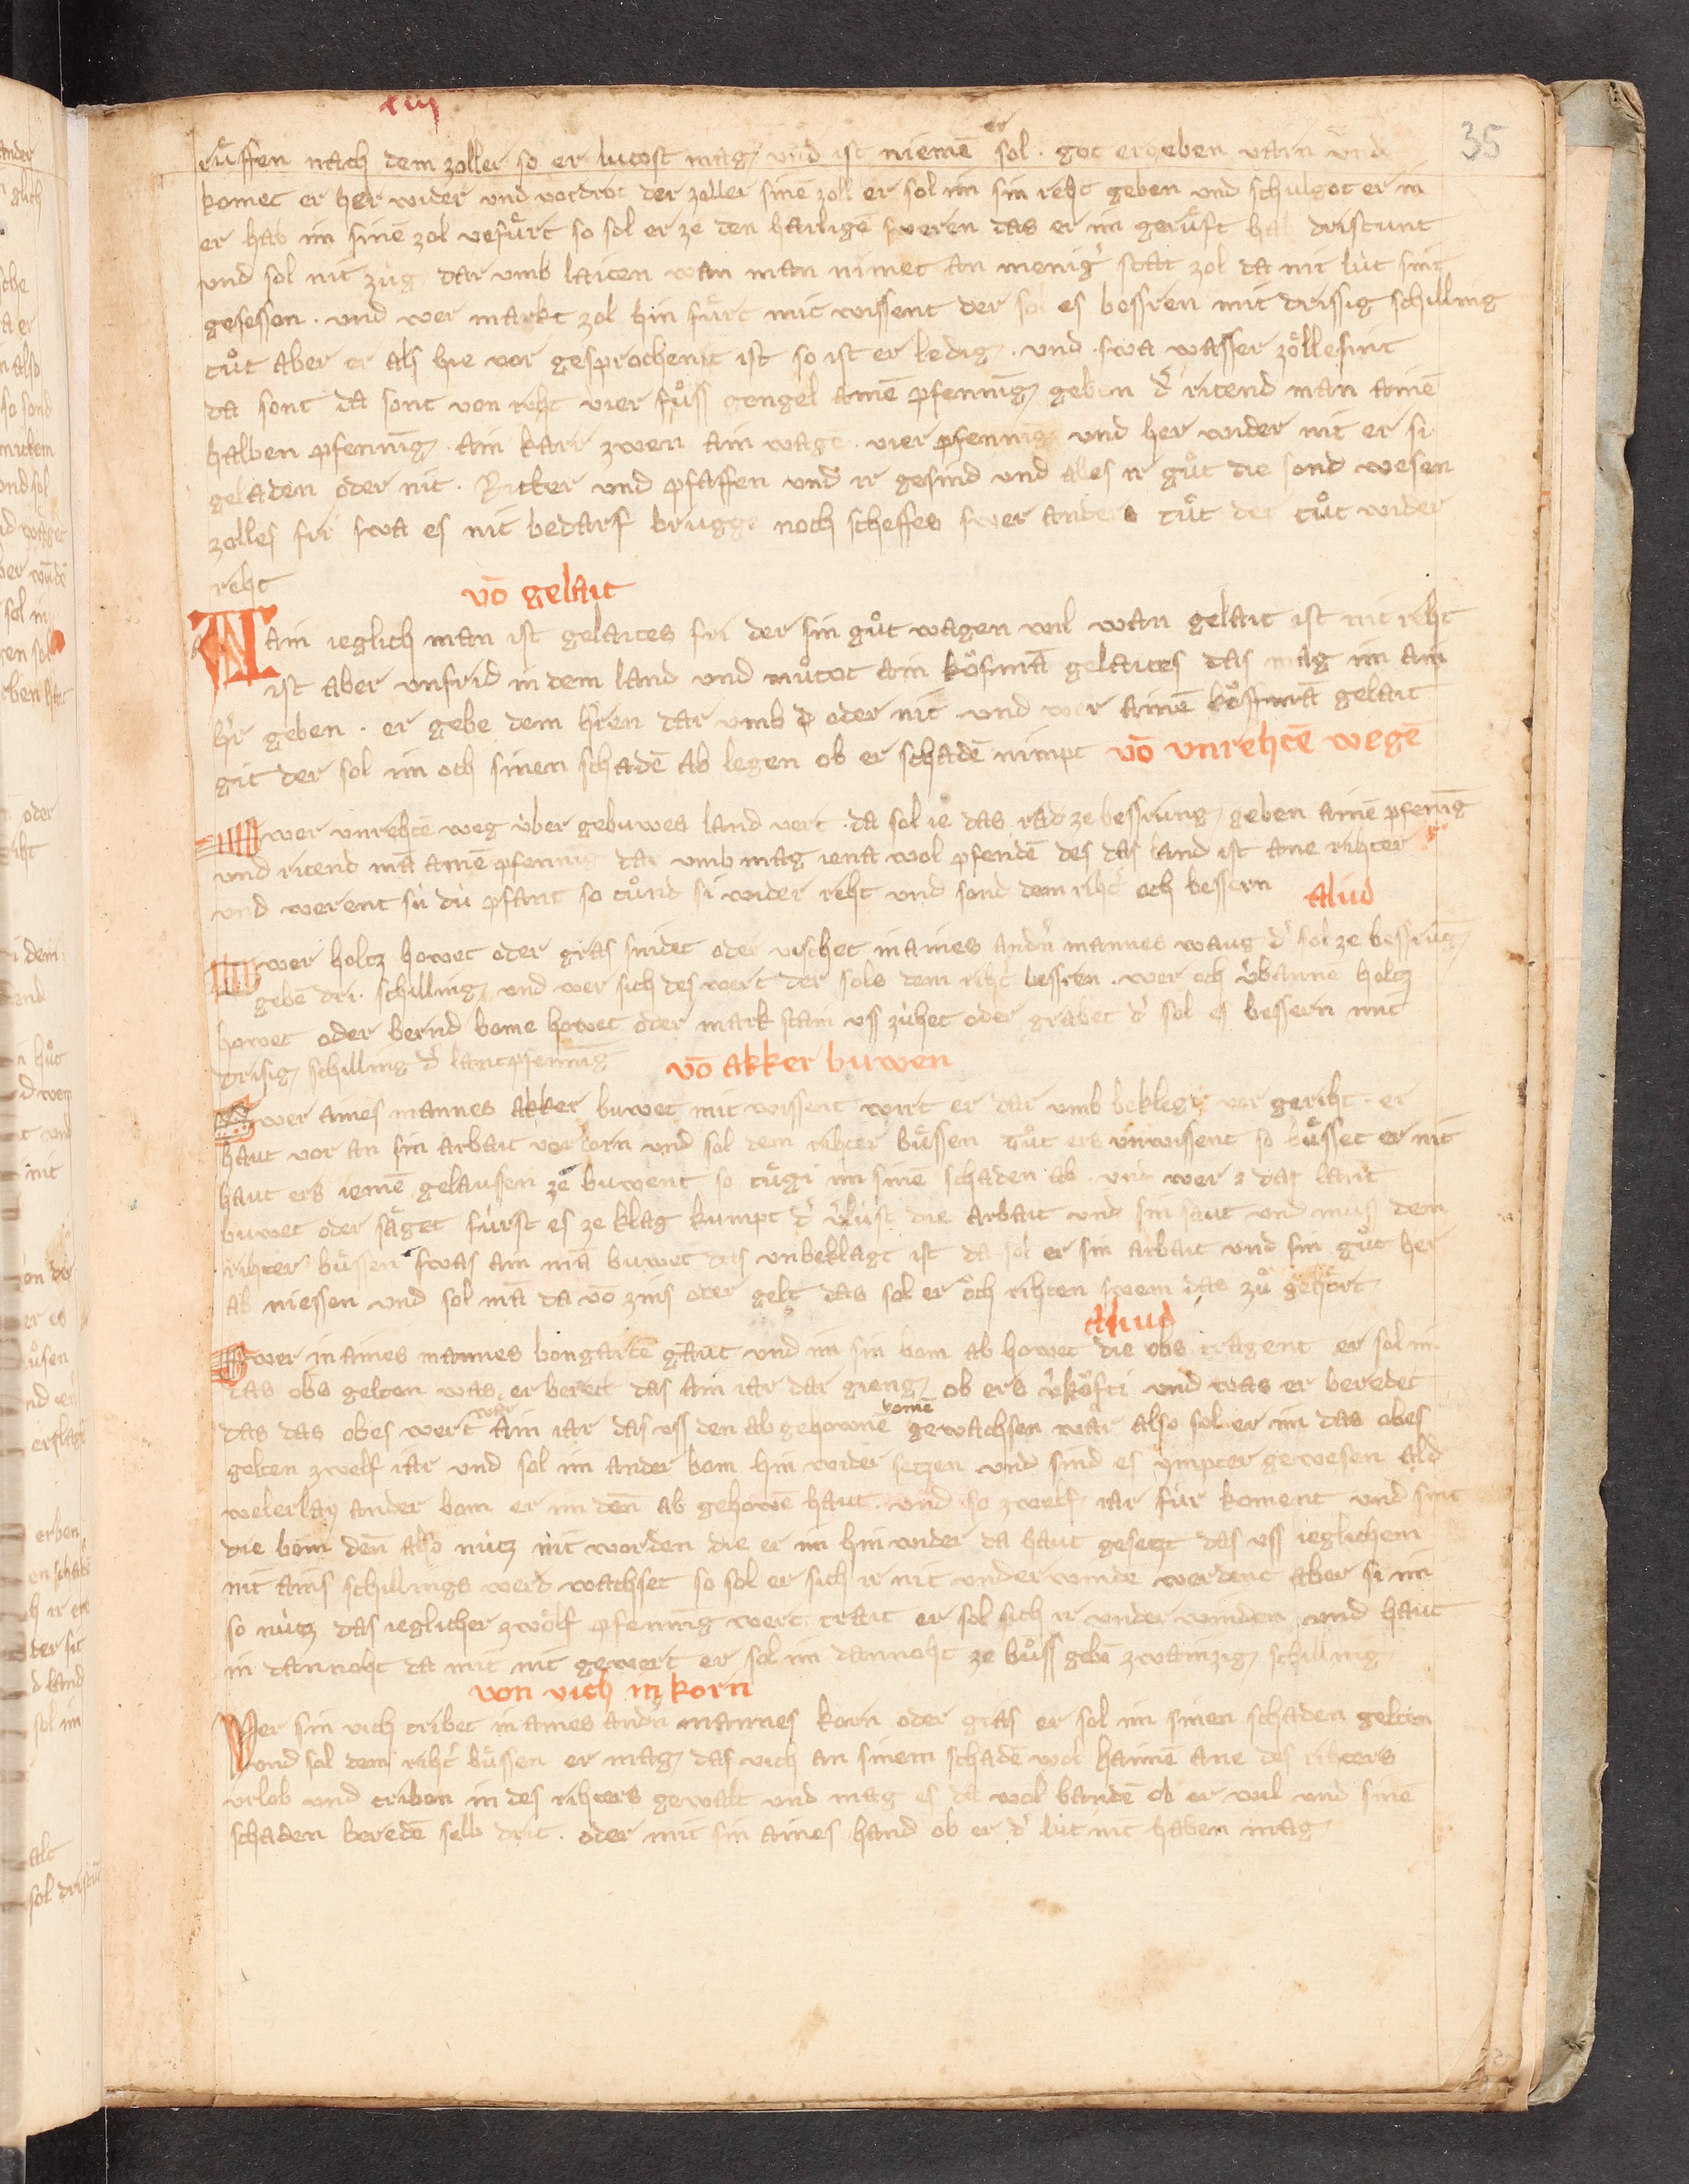 xiij
35
ruͤffen nach dem zoller so er lutost mag und ist niemē er sol . got ergeben varn und
komet er her wider und vordrot der zoller sinē zoll er sol im sin reht geben und schulgot er in
er hab im sinē zol vefuͤrt so sol er ze den hailigē sweren das er im geruͤft hab dristunt
und sol nit zúg dar umb laiten wan man nimet an menigʾ stat zol da nit lút sint
gesessen . und wer markt zol hin fuͤrt mit wissent der sol es bessren mit drissig schilling
tuͦt aber er als hie vor gesprochent ist so ist er ledig . und swa wasser zoͤlle sint
da sont da sont von reht vier fuͤss gengel ainē pfennīg geben dʾ ritend man ainē
halben pfennīg . ain karr zwen ain wage . vier pfennig und her wider nit er si
geladen oder nit . Ritter und pfaffen und ir gesind und alles ir guͦt die sond wesen
zolles fri swa es nit bedarf brugge noch scheffes swer anders tuͦt der tuͦt wider
reht
vō gelait
Wain ieglich man ist gelaites fri der sin guͦt wagen wil wan gelait ist nit reht
ist aber unfrid in dem land und muͦtot ain koͮfmā gelaites das mag im ain
hʾr geben . er gebe dem hʾren dar umb d oder nit und wer ainē koͮffmā gelait
git der sol im och sinen schadē ab legen ob er schadē nimpt vō unrehtē wegē
Swer unrehtē weg úber gebuwes land vert . da sol ie das rad ze bessrung geben ainē pfenīg
und ritend mā ainē pfennīg dar umb mag iena wol pfendē des das land ist ane rihter
und werent si dú pfant so tuͦnd si wider reht und sond dem rihtʾ och bessern aliud
Swer holtz howet oder gras snidet oder vischet in aines andʾn mannes waug dʾ sol ze bessrūg
gebē dri . schilling und wer sich des wert der sols dem rihtʾ bessren . wer och vʾbanne holtz
howet oder bernd bome howet oder mark stain uss zúhet oder grabet dʾ sol es bessern mit
drisig schilling dʾ lantpfennīg vō akker buwen
Swer aines mannes akker buwet mit wissent wirt er dar umb beklegt vor geriht . er
haut vor an sin arbait verlorn und sol dem rihter buͤssen tuͦt ers unwissent so buͤsset er nit
haut ers iemē gelausen ze buwent so tuͤgi im sinē schaden ab . und wer das lant
buwet oder saͤget fúrst es ze klag kumpt dʾ vʾlúst die arbait und sin saut und muss dem
rihter buͤssen swas ain mā buwet das unbeklagt ist da sol er sin arbait und sin guͦt her
ab niessen und sol mā da vō zins oder gelt das sol er och rihten swem das zuͦ gehoͤrt
aliud
Swer in aines mannes bongartē gaut und im sin bom ab howet die obs tragent er sol im
das obs gelten was er beret das ain iar dar gieng ob ers vʾkoͮfti und was er beredet
das das obes wert waͤr ain iar das uss den abgehownē bomē gewachsen waͤr also sol er im das obes
gelten zwelf iar und sol im ander bom hin wider setzen und sind es ympter gewesen ald
welerlay ander bom er im denn ab gehowē haut . und so zwelf iar fúr koment und sint
die bóm denn also nútz nit worden die er im hin wider da haut gesetzt das uss ieglichem
nit ains schillings werd wachset so sol er sich ir nit underwinde werdent aber si im
so nútz das ieglicher zwoͤlf pfennīg wert trait er sol sich ir underwinden . und haut
in dannoht da mit nit gewert er sol im dannoht ze buͦss gebē zwainzig schilling
von vich in korn
Wer sin vich tribet in aines andʾn mannes korn oder gras er sol im sinen schaden gelten
und sol dem rihtʾ buͤssen er mag das vich an sinem schadē wol hainnē ane des rihters
urlob und triben in des rihters gewalt und mag es da wol bandē ob er wil und sinē
schaden beredē selb drit . oder mit sin aines hand ob er dʾ lút nit haben mag